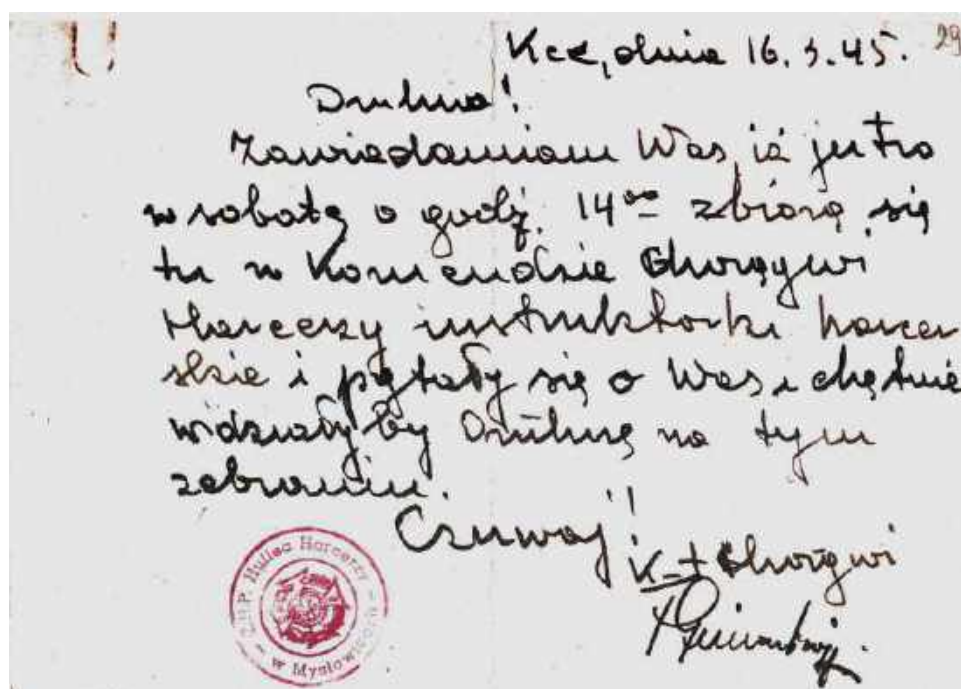 29
Kce, dnia 16.3.45.
Druhno!
Zawiadamiam Was, iż jutro
w sobotę o godz. 14⁰⁰ zbiorą się
tu w Komendzie Chorągwi
Harcerzy instruktorki harcer
skie i pytały się o Was i chętnie
widziałyby Druhnę na tym
zebraniu.
Czuwaj!
K-t Chorągwi
Z.H.P. Hufiec Harcerzy - w Mysłowicach